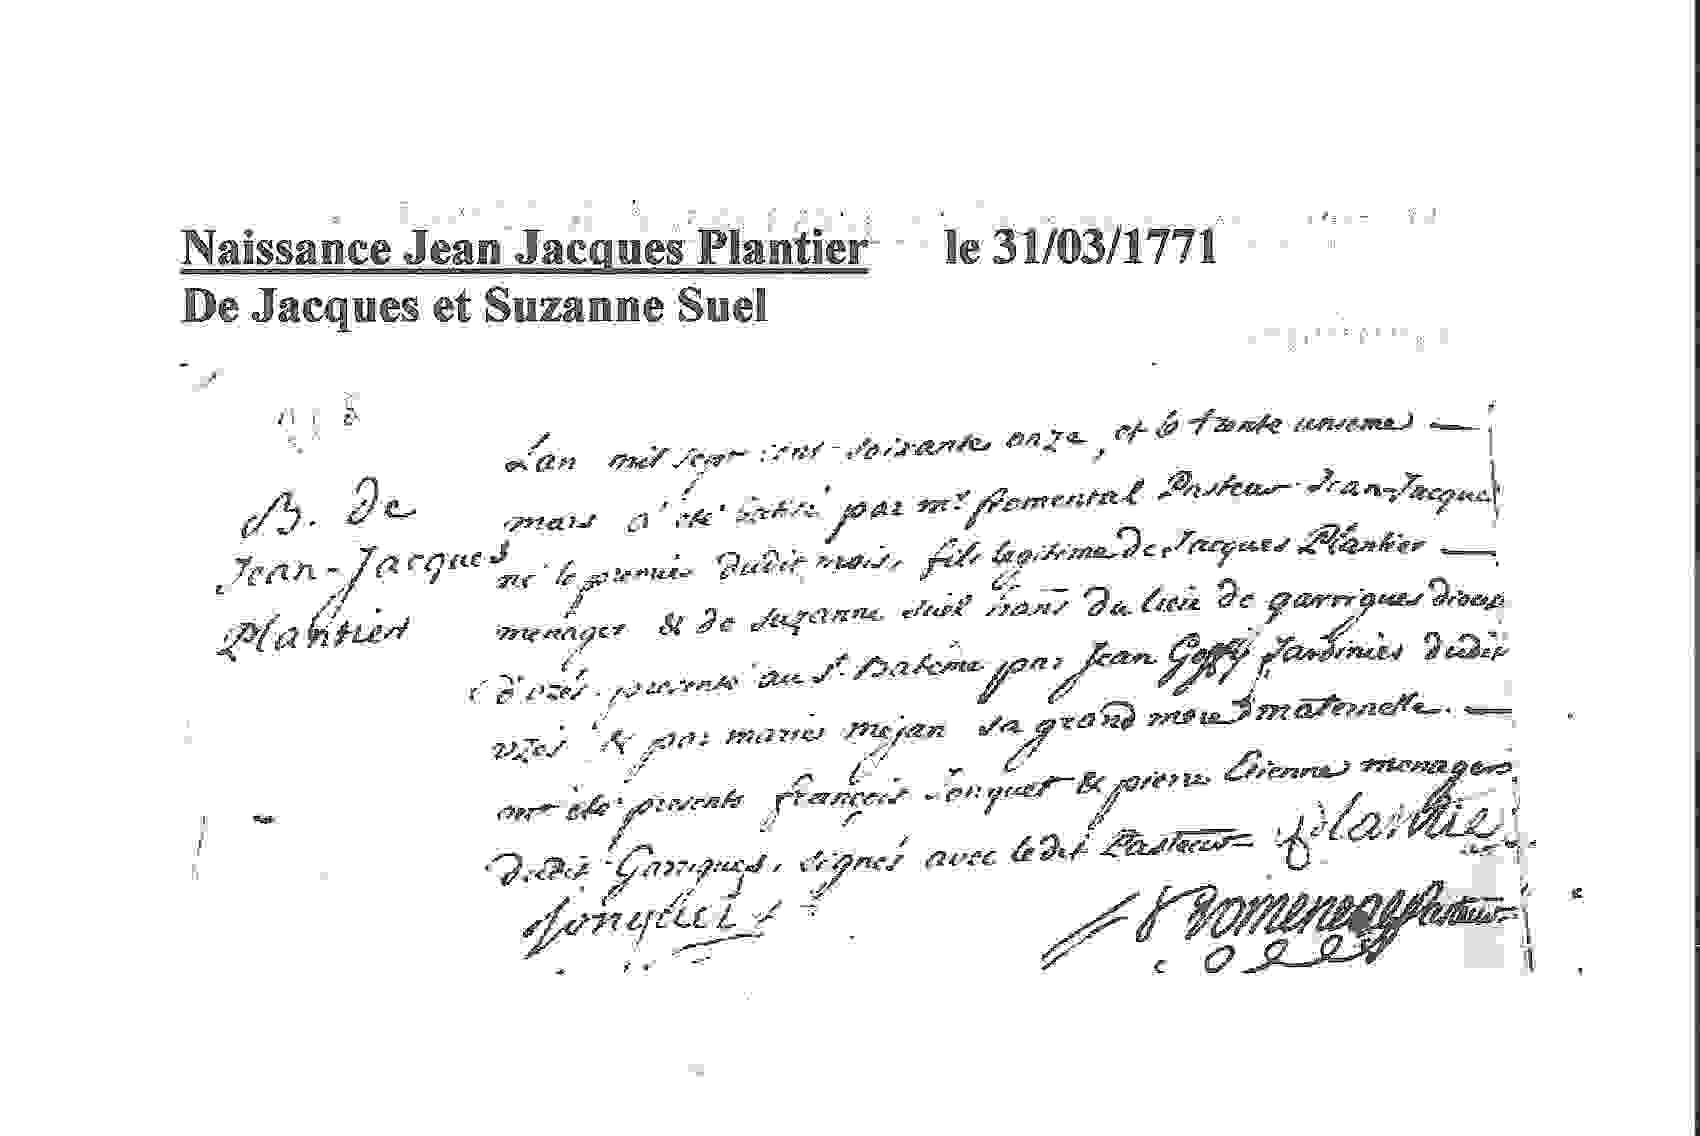 Naissance Jean Jacques Plantier le 31/03/1771
De Jacques et Suzanne Suel
B. de
Jean-Jacques
Plantier
L'an mil sept cent soixante onze, et le trente unieme
mars a été batisé par mr. fromental Pasteur Jean-Jacques
né le premier dudit mois, fils legitime de Jacques Plantier
menager & de suzanne suel du lieu de garrigues dioceze
d'uzés. presenté au st. Batême par Jean Jardinier dudit
uzés & par marie mejan sa grand mere maternelle.
ont été presents françois Jonquet & pierre Etienne menagers
dudit Garrigues, signés avec ledit Pasteur Plantie
Jonquet Pasteur